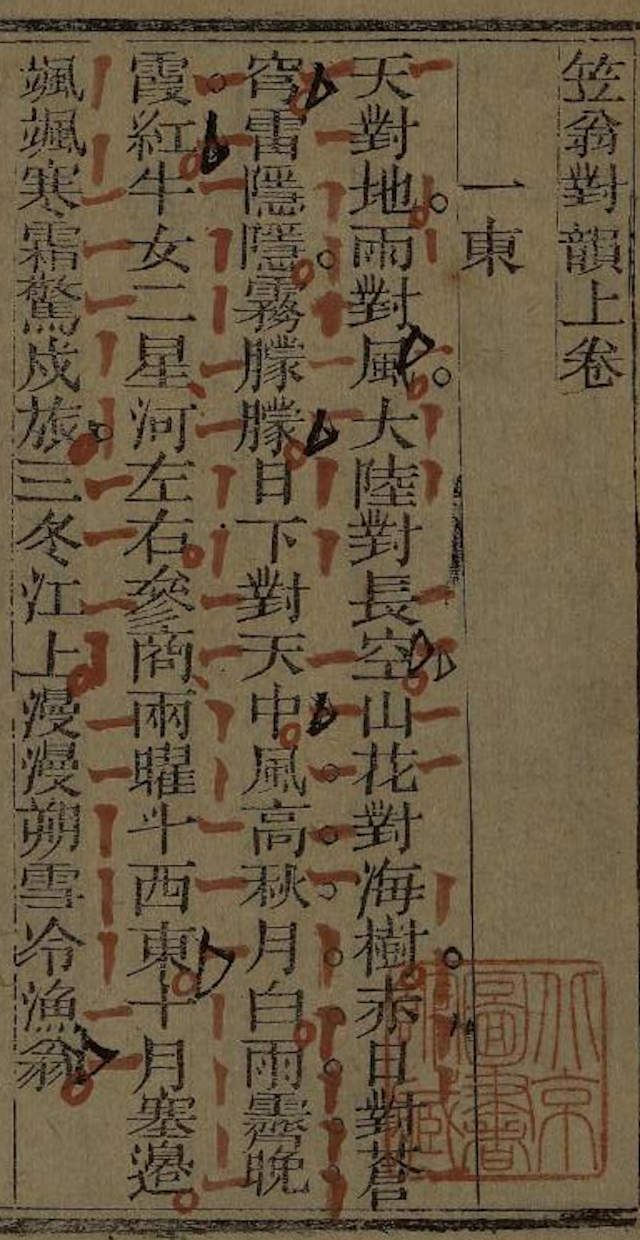 笠翁對韻上卷
一東
天對地雨對風大陸對長空山花對海樹赤日對蒼
穹雷隱隱霧朦朦日下對天中風高秋月白雨霽晚
霞紅牛女二星河左右參商兩曜斗西東十月塞邊
颯颯寒霜驚戍旅三冬江上漫漫朔雪冷漁翁
北京
圖書
館藏